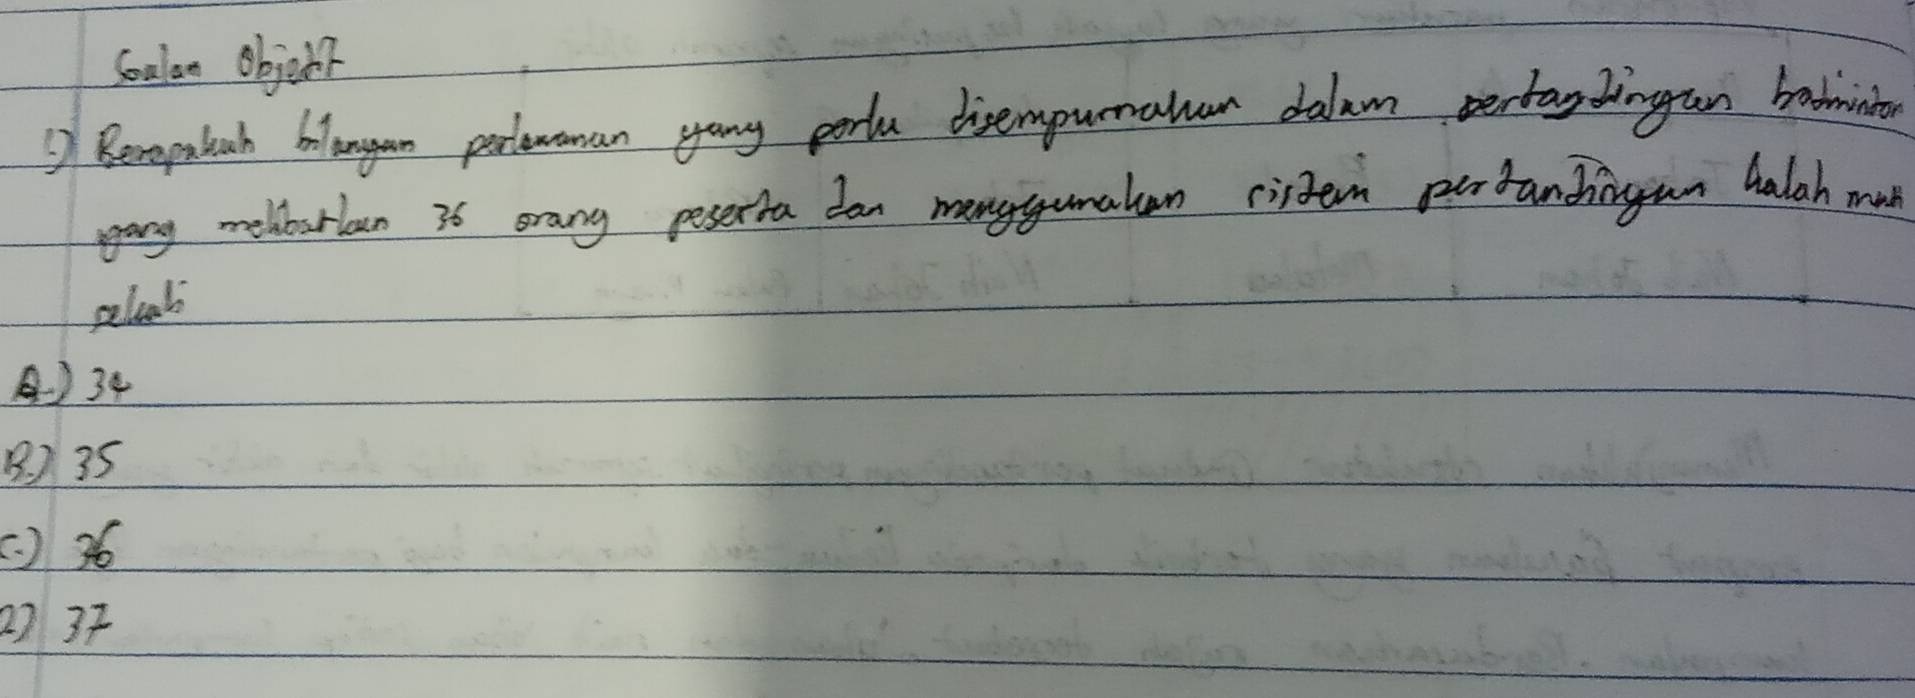 Soalan Objektif
1.) Berapakah bilangan perlawanan yang perlu disempurnakan dalam pertandingan badminton
yang melibatkan 36 orang peserta dan menggunakan sistem pertandingan kalah mati
sekali
A.) 34
B.) 35
C.) 36
D) 37